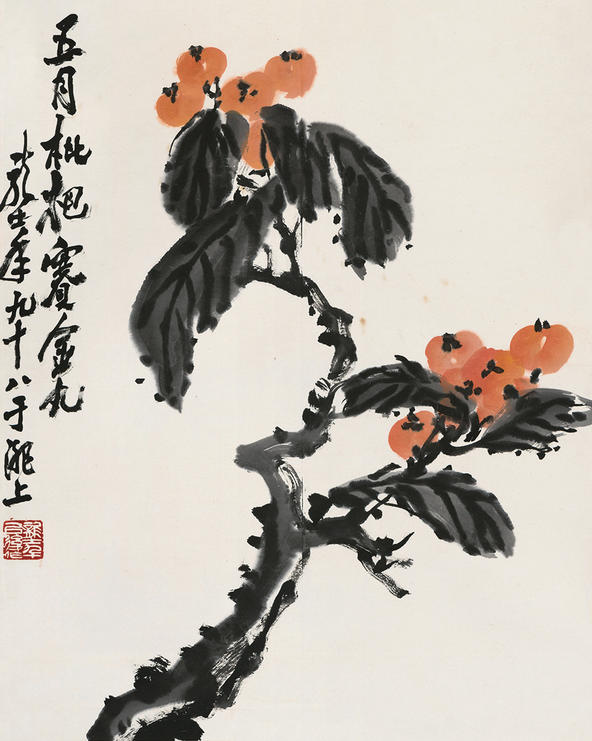 五月枇杷賽金丸
年九十八于滬上